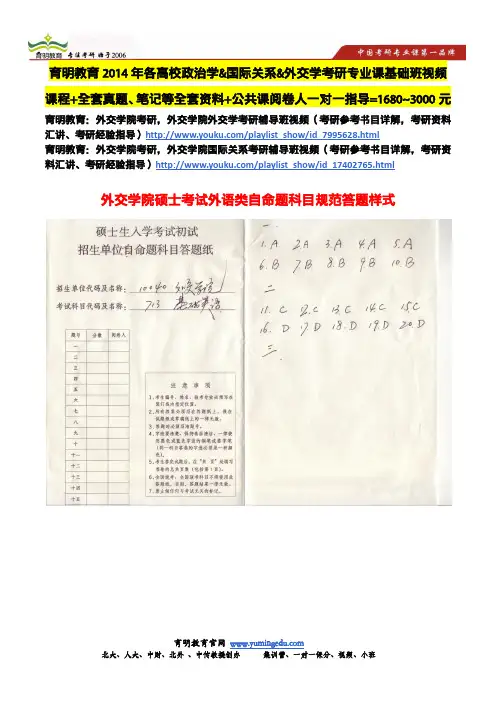 育明教育 专注考研 始于2006
中国考研专业课第一品牌
育明教育2014年各高校政治学&国际关系&外交学考研专业课基础班视频
课程+全套真题、笔记等全套资料+公共课阅卷人一对一指导=1680~3000元
育明教育：外交学院考研，外交学院外交学考研辅导班视频（考研参考书目详解，考研资料
汇讲、考研经验指导）http://www.youku.com/playlist_show/id_7995628.html
育明教育：外交学院考研，外交学院国际关系考研辅导班视频（考研参考书目详解，考研资
料汇讲、考研经验指导）http://www.youku.com/playlist_show/id_17402765.html
外交学院硕士考试外语类自命题科目规范答题样式
硕士生入学考试初试
招生单位自命题科目答题纸
招生单位代码及名称： 10040 外交学院
考试科目代码及名称： 713 基础英语
题号 分数 阅卷人
一
二
三
四
五
六
七
八
九
十
十一
十二
十三
十四
十五
注意事项
一.
1. A 2. A 3. A 4. A 5. A
6. B 7. B 8. B 9. B 10. B
二
11. C 12. C 13. C 14. C 15. C
16. D 17. D 18. D 19. D 20. D
三.
育明教育官网 www.yumingedu.com
北大、人大、中财、北外、中传教授创办 集训营、一对一保分、视频、小班